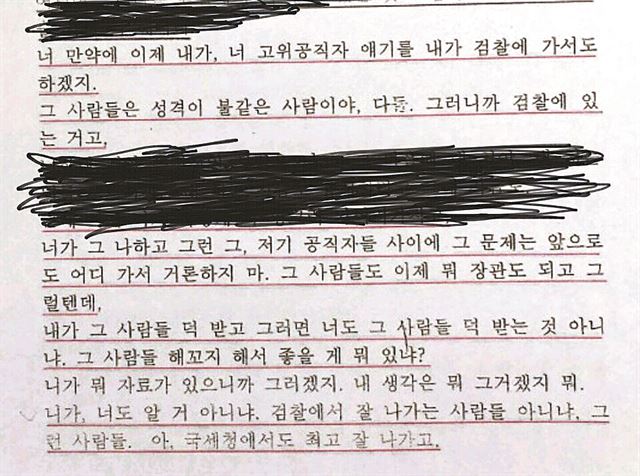 너 만약에 이제 내가, 너 고위공직자 얘기를 내가 검찰에 가서도
하겠지.
그 사람들은 성격이 불같은 사람이야, 다들. 그러니까 검찰에 있
는 거고,
너가 그 나하고 그런 그, 저기 공직자들 사이에 그 문제는 앞으로
도 어디 가서 거론하지 마. 그 사람들도 이제 뭐 장관도 되고 그
럴텐데,
내가 그 사람들 덕 받고 그러면 너도 그 사람들 덕 받는 것 아니
냐. 그 사람들 해꼬지 해서 좋을 게 뭐 있냐?
니가 뭐 자료가 있으니까 그러겠지. 내 생각은 뭐 그거겠지 뭐.
니가, 너도 알 거 아니냐. 검찰에서 잘 나가는 사람들 아니냐, 그
런 사람들. 아, 국세청에서도 최고 잘 나가고,